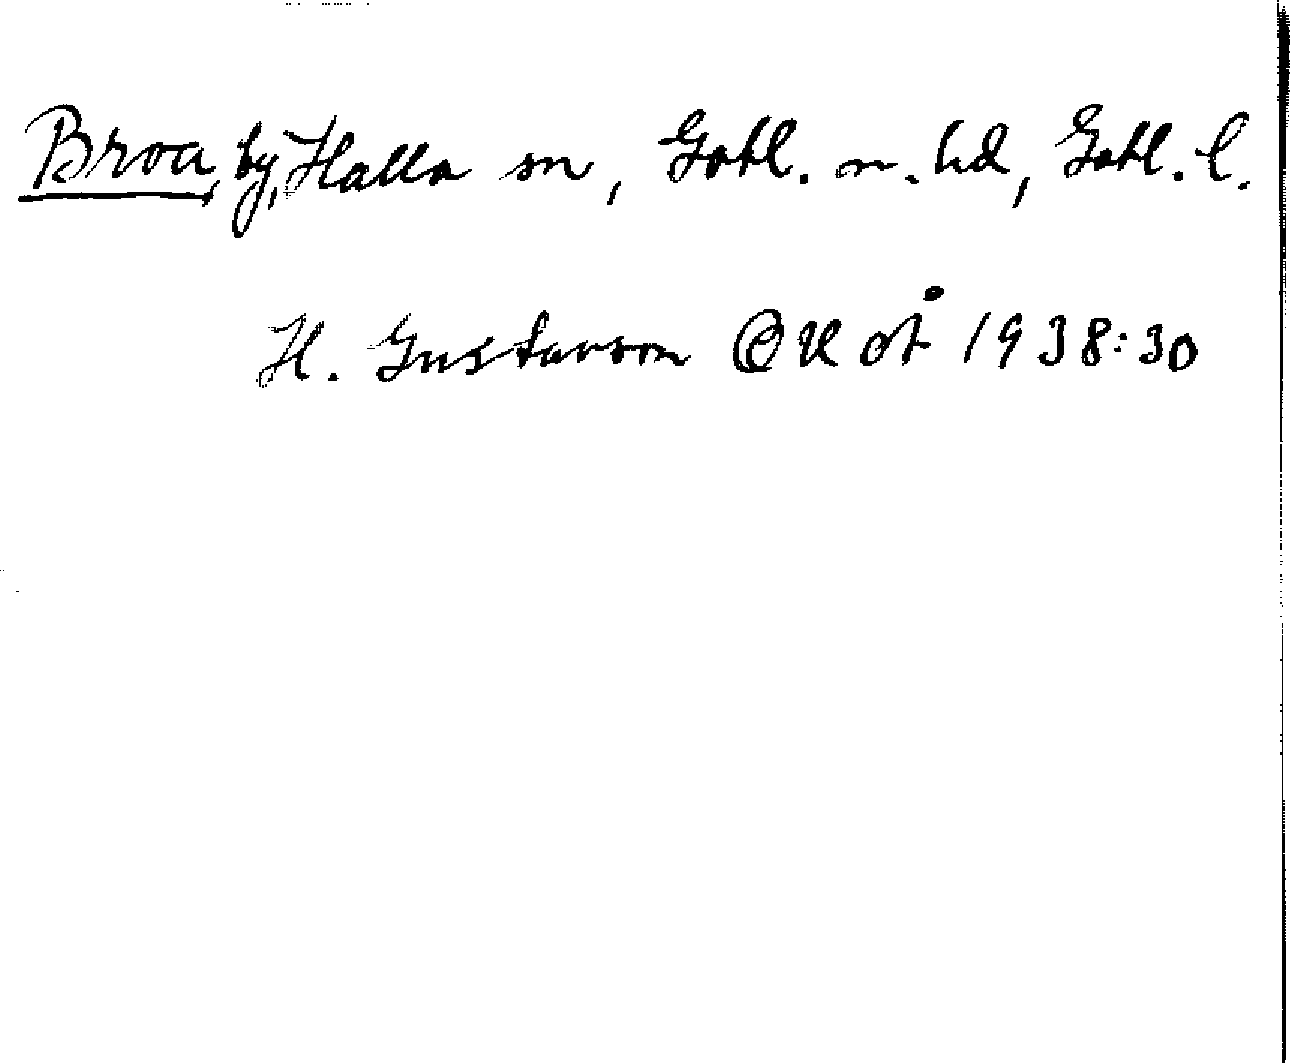 Broa, by, Halla sn, Gotl. n. hd, Gotl. l.
H. Gustavson OUÅ 1938:30